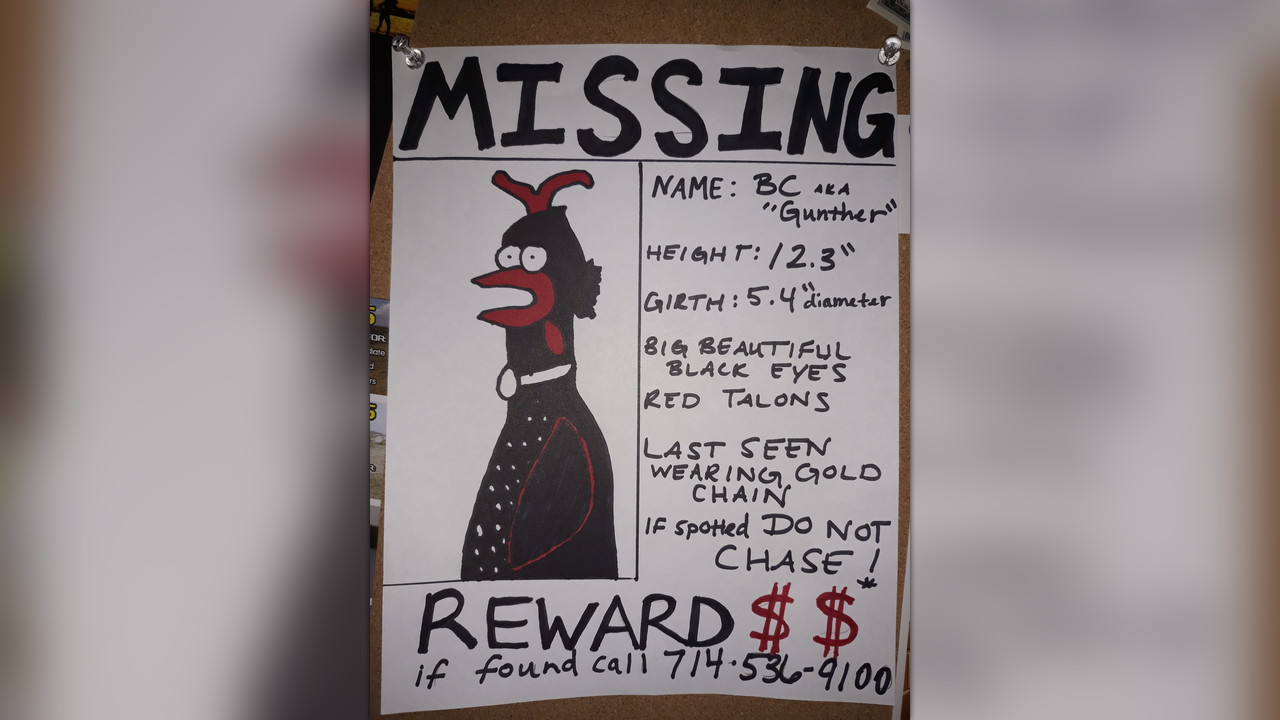 MISSING
NAME: BC AKA
"Gunther"
HEIGHT: 12.3"
GIRTH: 5.4" diameter
BIG BEAUTIFUL
BLACK EYES
RED TALONS
LAST SEEN
WEARING GOLD
CHAIN
IF spotted DO NOT
CHASE!
*
REWARD $$
if found call 714·536-9100